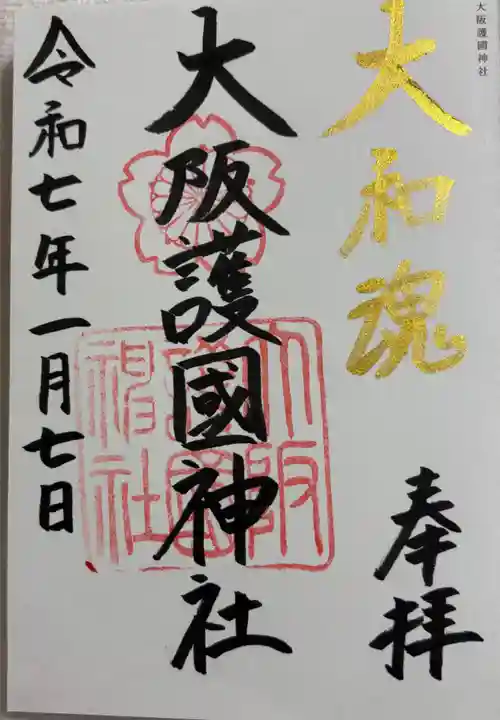 大阪護國神社
大和魂
奉拝
大阪護國神社
大阪護國神社
令和七年一月七日